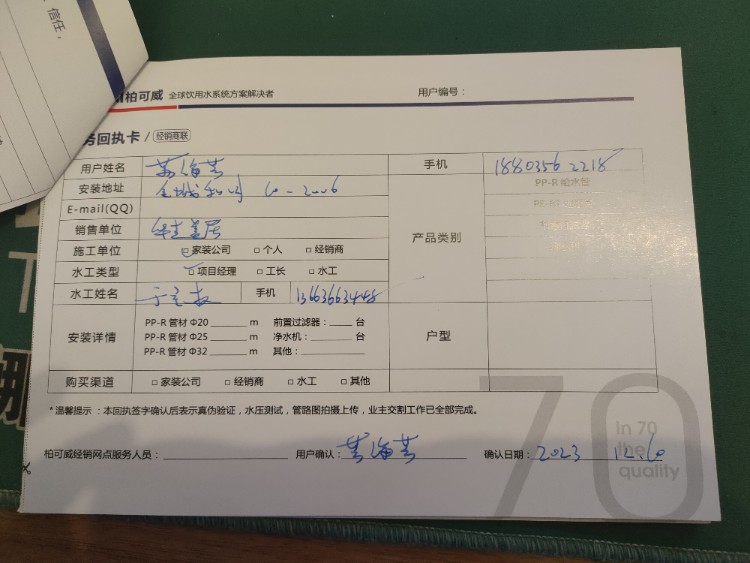 信任，
柏可威 全球饮用水系统方案解决者 用户编号：
务回执卡 / 经销商联
用户姓名 手机 18803562218
安装地址 10-2006
E-mail(QQ)
销售单位 产品类别 PP-R 给水管
施工单位 □家装公司 □个人 □经销商
水工类型 □项目经理 □工长 □水工
水工姓名 手机 13636634448
安装详情 户型
PP-R 管材 Φ20 ______ m 前置过滤器：____ 台
PP-R 管材 Φ25 ______ m 净水机：____ 台
PP-R 管材 Φ32 ______ m 其他：______
购买渠道 □家装公司 □经销商 □水工 □其他
*温馨提示：本回执签字确认后表示真伪验证，水压测试，管路图拍摄上传，业主交割工作已全部完成。
柏可威经销网点服务人员：__________ 用户确认： 确认日期：2023 12.10
70
In 70
the
quality